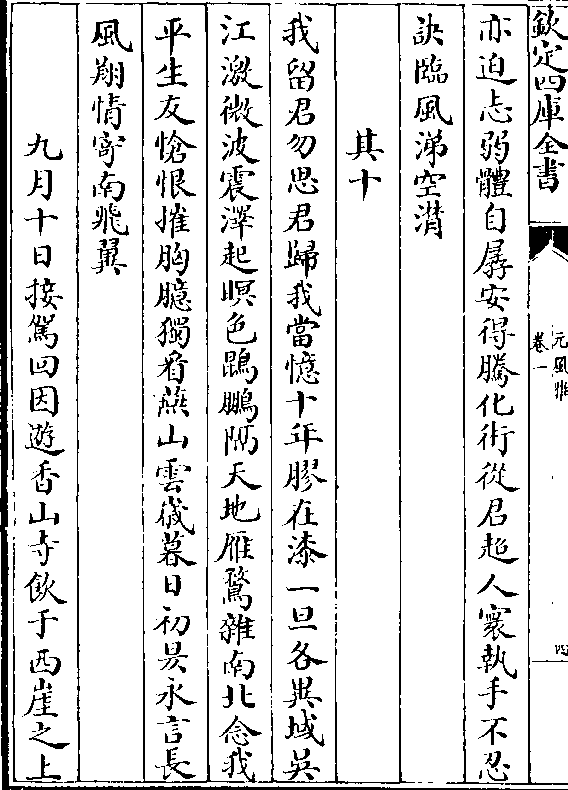 欽定四庫全書
元風雅
卷一
四
亦迫忐弱體自孱安得騰化術從君超人寰執手不忍
訣臨風涕空潸
其十
我留君勿思君歸我當憶十年膠在漆一旦各異域吳
江激微波震澤起暝色鵾鵬隔天地雁鶩雜南北念我
平生友愴恨摧胸臆獨看燕山雲歲暮日初昃永言長
風翔情寄南飛翼
九月十日接駕回因遊香山寺飲于西崖之上